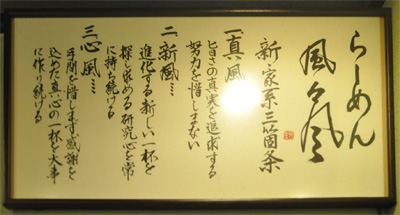 らーめん
風々風
新・家系三箇条
一真風…
旨さの真実を追求する
努力を惜しまない
二新風…
進化する新しい一杯を
探し求める研究心を常
に持ち続ける
三心風…
手間を惜しまず感謝を
込めた真心の一杯を大事
に作り続ける